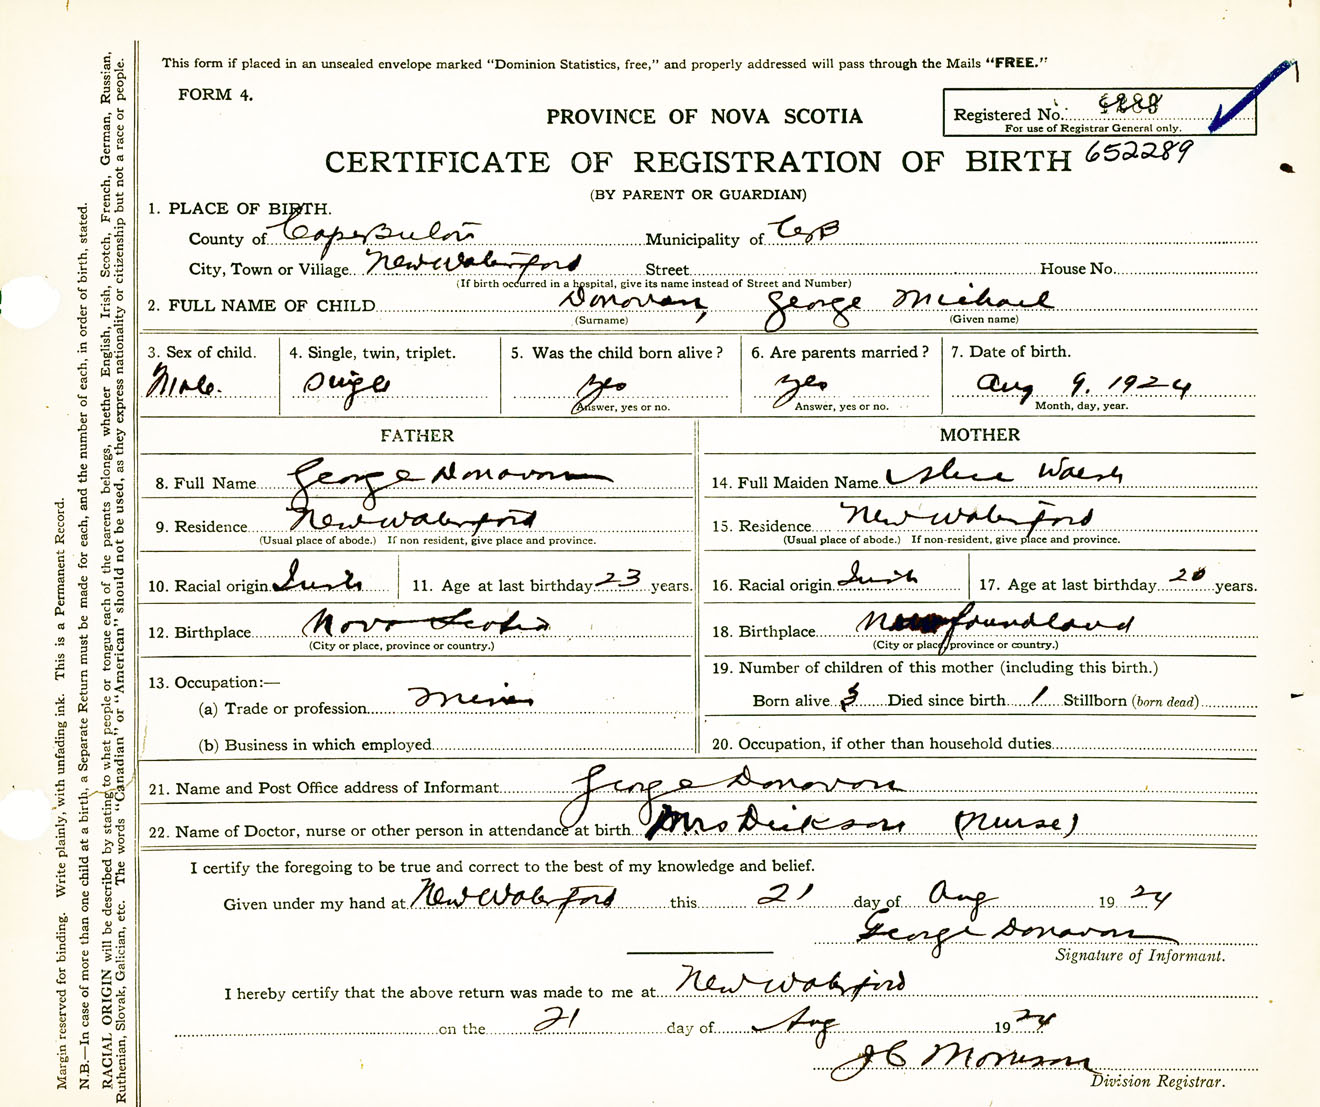 This form if placed in an unsealed envelope marked "Dominion Statistics, free," and properly addressed will pass through the Mails "FREE."
FORM 4.
PROVINCE OF NOVA SCOTIA
Registered No.
For use of Registrar General only.
CERTIFICATE OF REGISTRATION OF BIRTH 652289
(BY PARENT OR GUARDIAN)
1. PLACE OF BIRTH.
County of Cape Breton Municipality of C B
City, Town or Village New Waterford Street House No.
(If birth occurred in a hospital, give its name instead of Street and Number)
2. FULL NAME OF CHILD Donovan, George Michael
(Surname) (Given name)
3. Sex of child. 4. Single, twin, triplet. 5. Was the child born alive? 6. Are parents married? 7. Date of birth.
Male. Single yes yes Aug 9. 1924
Answer, yes or no. Answer, yes or no. Month, day, year.
FATHER MOTHER
8. Full Name George Donovan 14. Full Maiden Name Alice Walsh
9. Residence New Waterford 15. Residence New Waterford
(Usual place of abode.) If non resident, give place and province. (Usual place of abode.) If non-resident, give place and province.
10. Racial origin Irish 11. Age at last birthday 23 years. 16. Racial origin Irish 17. Age at last birthday 20 years.
12. Birthplace Nova Scotia 18. Birthplace Newfoundland
(City or place, province or country.) (City or place, province or country.)
19. Number of children of this mother (including this birth.)
13. Occupation:—
(a) Trade or profession Miner Born alive 3 Died since birth 1 Stillborn (born dead)
(b) Business in which employed 20. Occupation, if other than household duties
21. Name and Post Office address of Informant George Donovan
22. Name of Doctor, nurse or other person in attendance at birth Mrs Dickson (Nurse)
I certify the foregoing to be true and correct to the best of my knowledge and belief.
Given under my hand at New Waterford this 21 day of Aug 1924
George Donovan
Signature of Informant.
I hereby certify that the above return was made to me at New Waterford
on the 21 day of Aug 1924
J C Morrison
Division Registrar.
Margin reserved for binding. Write plainly, with unfading ink. This is a Permanent Record.
N.B.—In case of more than one child at a birth, a Separate Return must be made for each, and the number of each, in order of birth, stated.
RACIAL ORIGIN will be described by stating to what people or tongue each of the parents belongs, whether English, Irish, Scotch, French, German, Russian,
Ruthenian, Slovak, Galician, etc. The words "Canadian" or "American" should not be used, as they express nationality or citizenship but not a race or people.